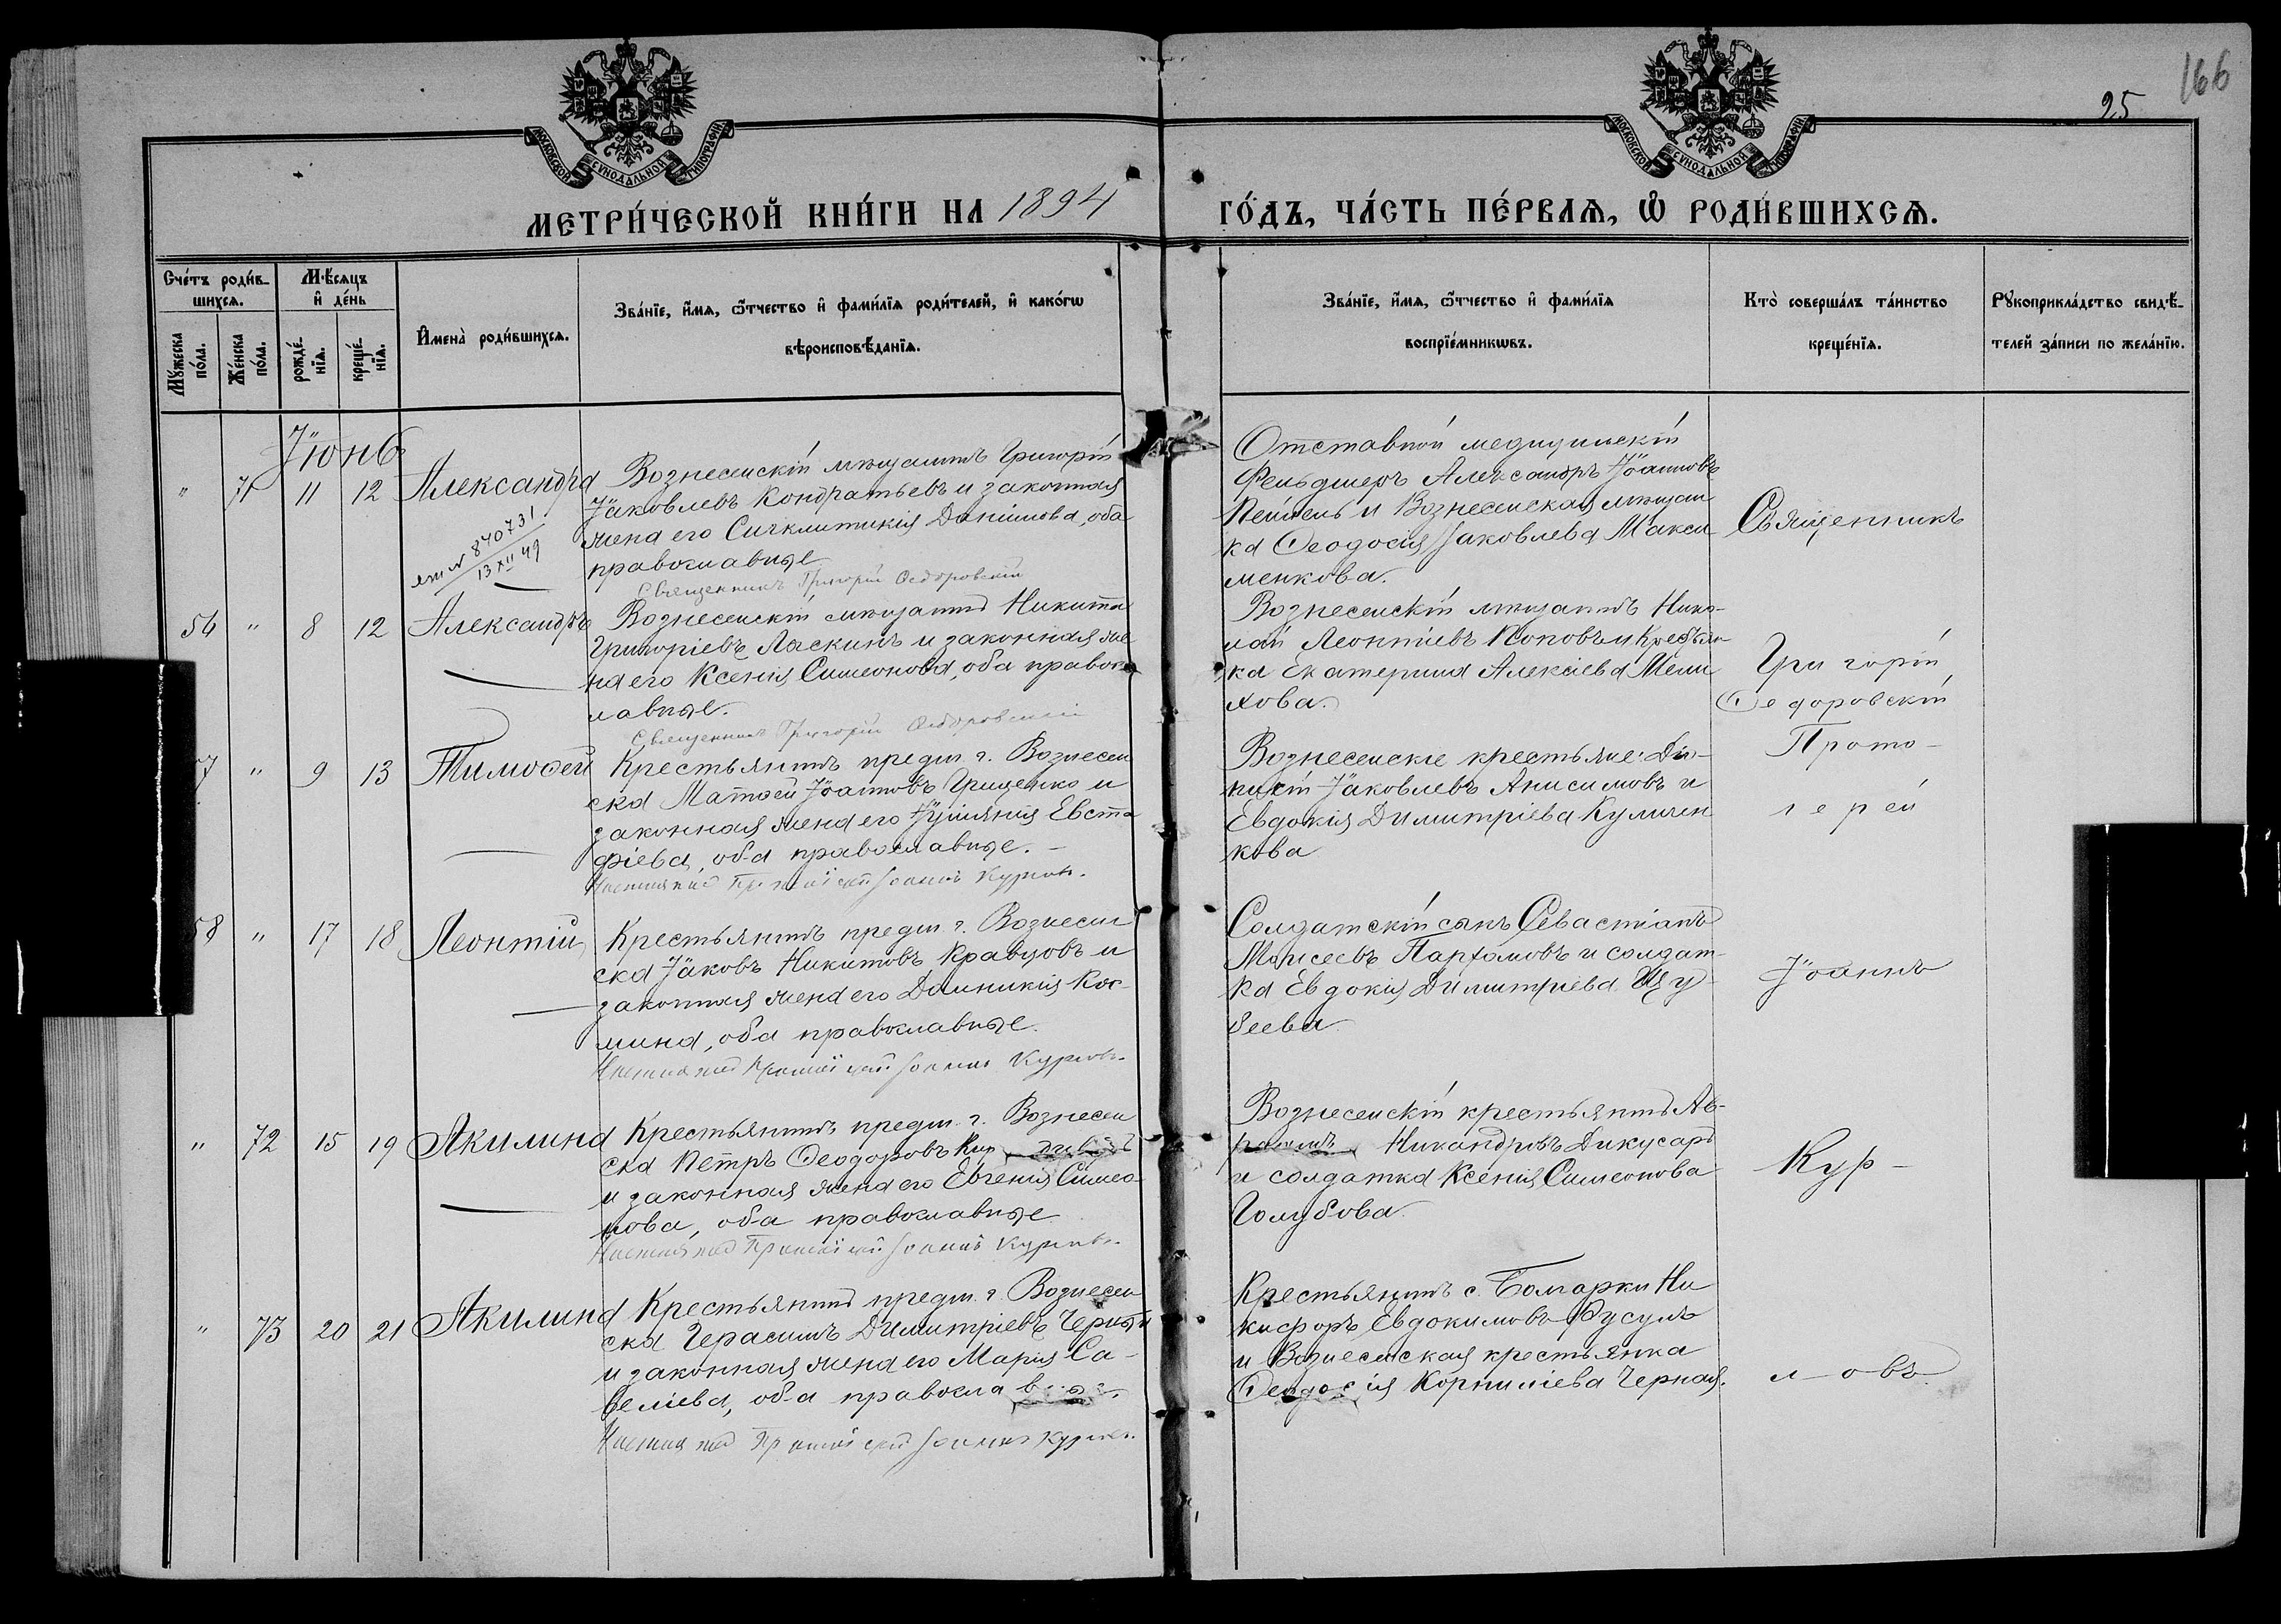 166
25
МОСКОВСКОЙ СѴНОДАЛЬНОЙ ТИПОГРАФІИ
МОСКОВСКОЙ СѴНОДАЛЬНОЙ ТИПОГРАФІИ
МЕТРИ́ЧЕСКОЙ КНИ́ГИ НА 1894 ГО́ДЪ, ЧА́СТЬ ПЕ́РВАѦ, Ѽ РОДИ́ВШИХСѦ.
Сче́тъ роди́в-
шихсѧ.
Мꙋ́жеска по́ла.
Же́нска по́ла.
Мѣ́сѧцъ
и҆ де́нь
рожде́-
нїѧ.
креще́-
нїѧ.
И҆мена̀ роди́вшихсѧ.
Зва́нїе, и҆́мѧ, ѻ҆́тчество и҆ фами́лїѧ роди́телей, и҆ како́гѡ
вѣроисповѣ́данїѧ.
Зва́нїе, и҆́мѧ, ѻ҆́тчество и҆ фами́лїѧ
воспрїе́мникѡвъ.
Кто̀ соверша́лъ та́инство
креще́нїѧ.
Рꙋкоприкла́дство свидѣ́-
телей за́писи по жела́нїю.
Іюнь
" 71 11 12 Александра
840731
13 XII 49
Вознесенскій мѣщанинъ Григорій
Іаковлевъ Кондратьевъ и законная
жена его Даніилова, оба
православные
Священникъ Григорій Ѳедоровскій
Отставной медицинскій
Фельдшеръ Александръ Іоанновъ
и Вознесенская мѣщан
ка Ѳеодосія Іаковлева Макси
менкова.
Священникъ
56 " 8 12 Александръ
Вознесенскій мѣщанинъ Никита
Григоріевъ Ласкинъ и законная же
на его Ксенія Симеонова, оба правос
лавные.
Священникъ Григорій Ѳедоровскій
Вознесенскій мѣщанинъ Нико-
лай Леонтіевъ Поповъ и Крестьян
ка Екатерина Алексіева Мели
хова.
Григорій
Ѳедоровскій
7 " 9 13 Тимоѳей
Крестьянинъ предм. г. Вознесен
ска Матѳей Іоанновъ Грищенко и
законная жена его Іуліанія Евста
фіева, оба православные.
Протоіерей Іоаннъ Курловъ.
Вознесенские крестьяне: Ді-
Іаковлевъ Анисимовъ и
Евдокія Димитріева Куличен
кова
Прото-
іерей
58 " 17 18 Леонтій
Крестьянинъ предм. г. Вознесен
ска Іаковъ Никитовъ Кравцовъ и
законная жена его Домникія Кос-
мина, оба православные.
Протоіерей Іоаннъ Курловъ.
Солдатскій сынъ Севастіанъ
Моисеевъ Парфомовъ и солдат-
ка Евдокія Димитріева
Іоаннъ
" 72 15 19 Акилина
Крестьянинъ предм. г. Вознесен
ска Петръ Ѳеодоровъ
и законная жена его Евгенія Симео-
нова, оба православные
Протоіерей Іоаннъ Курловъ.
Вознесенскій крестьянинъ Ав-
раамъ Никандровъ Дикусаръ
и солдатка Ксенія Симеонова
Голубова.
Кур-
" 73 20 21 Акилина
Крестьянинъ предм. г. Вознесен
ска Герасимъ Димитріевъ Черный
и законная жена его Марія Са-
веліева, оба правосла
Протоіерей Іоаннъ Курловъ.
Крестьянинъ с. Болгарки Ни
кифоръ Евдокимовъ Русулъ
и Вознесенская крестьянка
Ѳеодосія Корниліева Черная.
ловъ.